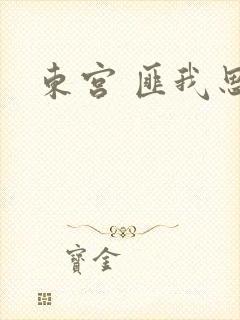 東宮 匪我思
寶金